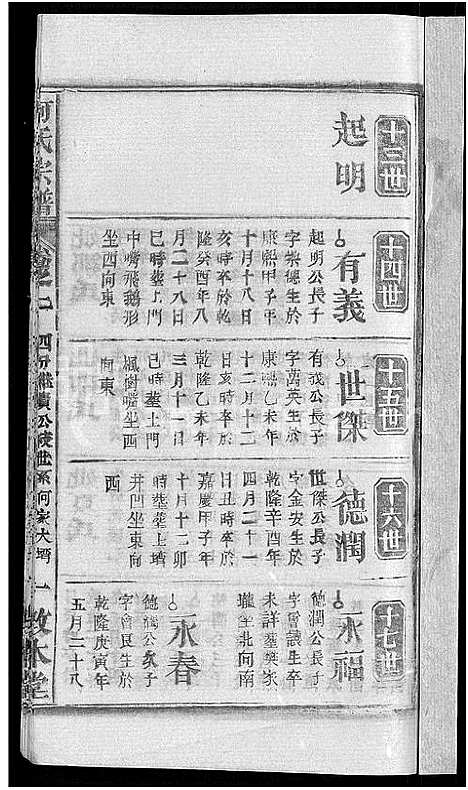 十三世
起明
十四世
有義
起明公長子
字崇德生於
康熙甲子年
十月十八日
亥時卒於乾
隆癸酉年八
月二十八日
巳時塟上門
中嘴飛鵝形
坐西向東
十五世
世傑
有義公長子
字萬英生於
康熙乙未年
十二月十二
日亥時卒於
乾隆乙未年
三月十一日
巳時塟土門
楓樹嘴坐西
向東
十六世
德潤
世傑公長子
字金安生於
乾隆辛酉年
四月二十一
日丑時卒於
嘉慶甲子年
十月十二卯
時塟塟上壻
井凹坐東向
西
十七世
永福
德潤公長子
字會讓生卒
未詳塟樊家
壠坐北向南
永春
德潤公次子
字會艮生於
乾隆庚寅年
五月二十八
何氏宗譜
卷之一
四分繼賢公陵世系何家大壻
一敘本堂